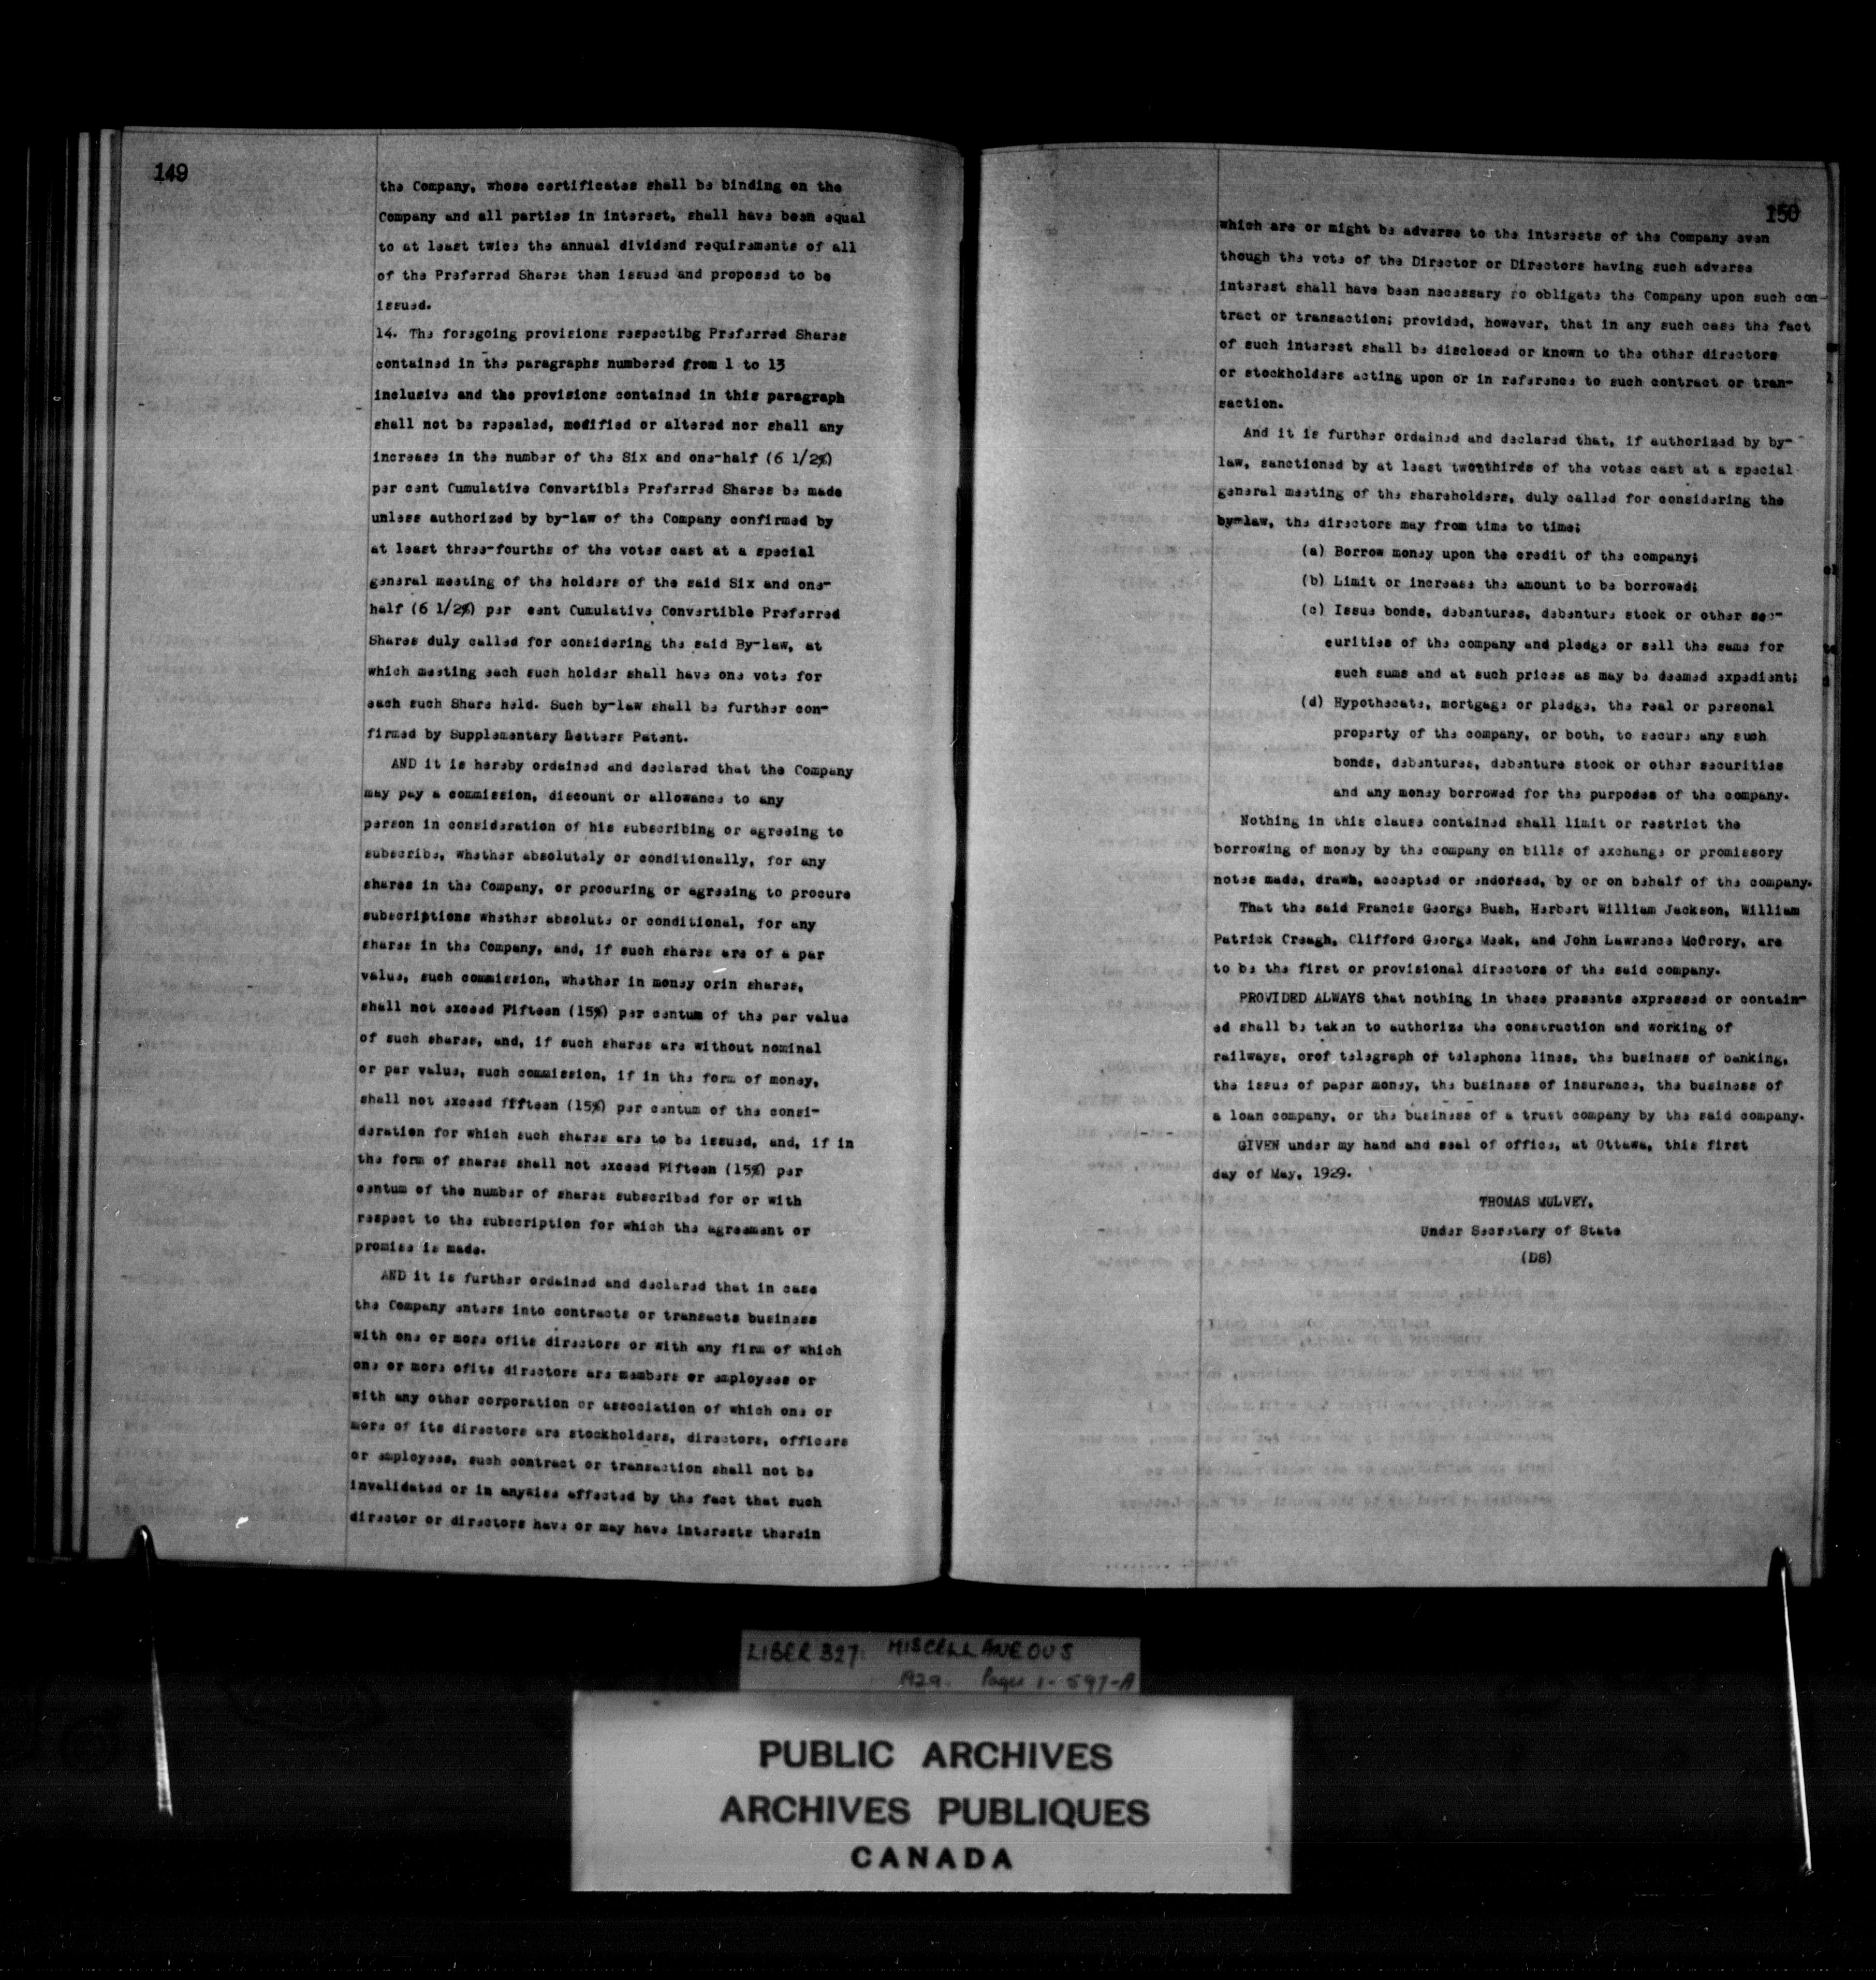 149
the Company, whose certificates shall be binding on the
Company and all parties in interest, shall have been equal
to at least twice the annual dividend requirements of all
of the Preferred Shares then issued and proposed to be
issued.
14. The foregoing provisions respectibg Preferred Shares
contained in the paragraphs numbered from 1 to 13
inclusive and the provisions contained in this paragraph
shall not be repealed, modified or altered nor shall any
increase in the number of the Six and one-half (6 1/2%)
per cent Cumulative Convertible Preferred Shares be made
unless authorized by by-law of the Company confirmed by
at least three-fourths of the votes cast at a special
general meeting of the holders of the said Six and one-
half (6 1/2%) per cent Cumulative Convertible Preferred
Shares duly called for considering the said By-law, at
which meeting each such holder shall have one vote for
each such Share held. Such by-law shall be further con-
firmed by Supplementary Letters Patent.
AND it is hereby ordained and declared that the Company
may pay a commission, discount or allowance to any
person in consideration of his subscribing or agreeing to
subscribe, whether absolutely or conditionally, for any
shares in the Company, or procuring or agreeing to procure
subscriptions whether absolute or conditional, for any
shares in the Company, and, if such shares are of a par
value, such commission, whether in money orin shares,
shall not exceed Fifteen (15%) per centum of the par value
of such shares, and, if such shares are without nominal
or par value, such commission, if in the form of money,
shall not exceed fifteen (15%) per centum of the consi-
deration for which such shares are to be issued, and, if in
the form of shares shall not exceed Fifteen (15%) per
centum of the number of shares subscribed for or with
respect to the subscription for which the agreement or
promise is made.
AND it is further ordained and declared that in case
the Company enters into contracts or transacts business
with one or more ofits directors or with any firm of which
one or more ofits directors are members or employees or
with any other corporation or association of which one or
more of its directors are stockholders, directors, officers
or employees, such contract or transaction shall not be
invalidated or in anywise affected by the fact that such
director or directors have or may have interests therein
150
which are or might be adverse to the interests of the Company even
though the vote of the Director or Directors having such adverse
interest shall have been necessary ro obligate the Company upon such con-
tract or transaction; provided, however, that in any such case the fact
of such interest shall be disclosed or known to the other directors
or stockholders acting upon or in reference to such contract or tran-
saction.
And it is further ordained and declared that, if authorized by by-
law, sanctioned by at least twotthirds of the votes cast at a special
general meeting of the shareholders, duly called for considering the
by-law, the directors may from time to time;
(a) Borrow money upon the credit of the company;
(b) Limit or increase the amount to be borrowed;
(c) Issue bonds, debentures, debenture stock or other sec-
curities of the company and pledge or sell the same for
such sums and at such prices as may be deemed expedient;
(d) Hypothecate, mortgage or pledge, the real or personal
property of the company, or both, to secure any such
bonds, debentures, debenture stock or other securities
and any money borrowed for the purposes of the company.
Nothing in this clause contained shall limit or restrict the
borrowing of money by the company on bills of exchange or promissory
notes made, drawn, accepted or endorsed, by or on behalf of the company.
That the said Francis George Bush, Herbert William Jackson, William
Patrick Creagh, Clifford George Meek, and John Lawrence McCrory, are
to be the first or provisional directors of the said company.
PROVIDED ALWAYS that nothing in these presents expressed or contain-
ed shall be taken to authorize the construction and working of
railways, orof telegraph or telephone lines, the business of banking,
the issue of paper money, the business of insurance, the business of
a loan company, or the business of a trust company by the said company.
GIVEN under my hand and seal of office, at Ottawa, this first
day of May, 1929.
THOMAS MULVEY,
Under Secretary of State
(DS)
LIBER 327: MISCELLANEOUS
1929. Pages 1-597-A
PUBLIC ARCHIVES
ARCHIVES PUBLIQUES
CANADA